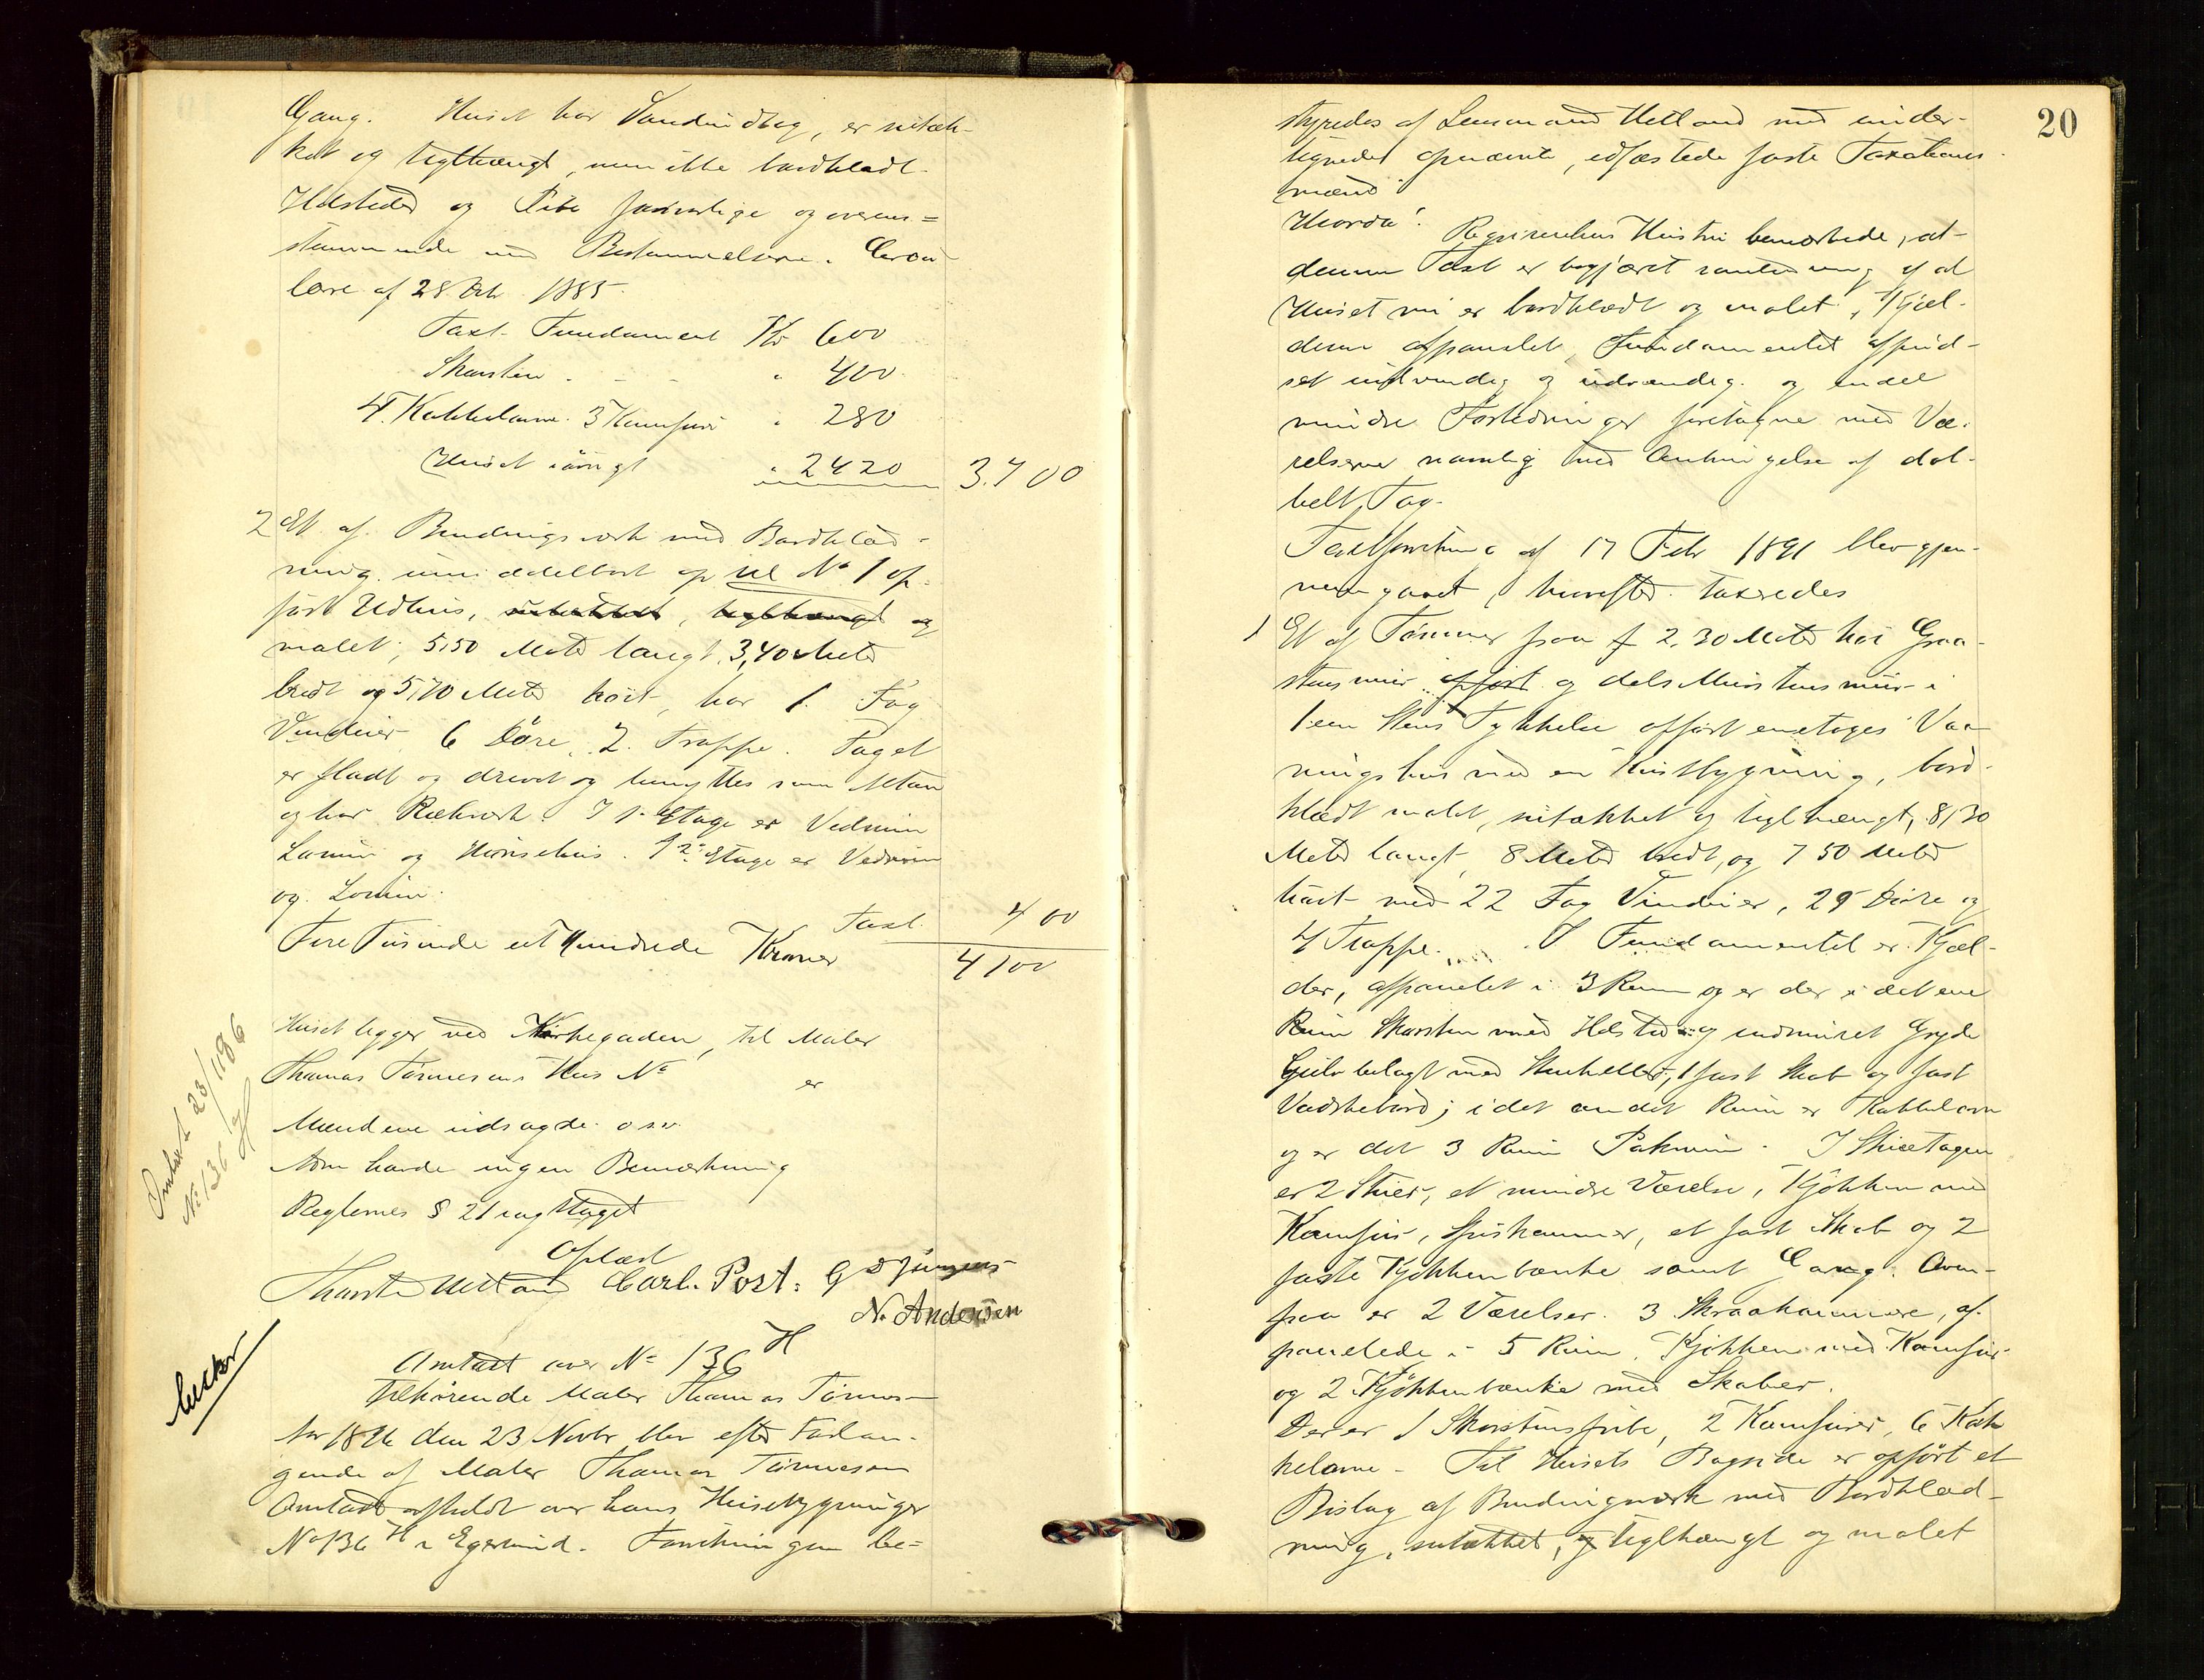 Gang. Huset har Vandindlæg, er sutæk-
ket og teglhængt, men ikke bordklædt.
Ildsteder og Pibe forsvarlige og overens=
stemmende med Bestemmelserne i Circu-
lære af 28 Oct. 1885.
Taxt. Fundament Kr 600
Skorsten . - - " 400
4. Kakkelovne. 3 Komfurer " 280
Huset iøvrigt " 2420 3.700
2 Et af Bindingsværk med Bordklæd-
ning umiddelbart op til No 1 op-
ført Udhus, sutækket, teglhængt og
malet, 5,50 Meter langt, 3,40 Meter
bredt og 5,70 Meter høit, har 1. Fag
Vinduer 6 Døre, 2. Trappe. Taget
er fladt og drevet og benyttes som Altan
og har Rækværk. I 1. Etage er Vedrum
Lorum og Hønsehus. I 2. Etage er Vedrum
og Lorum.
Taxt. 400
Fire Tusinde et Hundrede Kroner 4100
Huset ligger ved Kirkegaden, til Maler
Thomas Tønnesens Hus No er
Mændene udsagde o.s.v.
Som havde ingen Bemærkning
Reglernes § 21 iagttaget
Oplæst
Thorste Hetland Carl. Post: G D Jürgens
N. Andersen
Omtaxt 23/11 96
No 136 H
lucker
Omtaxt over No 136 H
tilhørende Maler Thomas Tønnes-
Aar 1896 den 23 Novbr blev efter Forlan-
gende af Maler Thomas Tønnesen
Omtaxt afholdt over hans Husebygninger
No 136 H i Egersund. Forretningen be=
20
styredes af Lensmand Hetland med under-
tegnede opnævnte, edfæstede faste Taxations-
mænd
Hvorda:
Reqvirentens Hustru bemærkede, at
denne Taxt er begjæret i anledning af at
Huset nu er bordklædt og malet, Kjæl-
deren afpanelet, Fundamentet afpud-
set indvendig og udvendig og endel
mindre Forbedringer foretagne med Væ-
relserne namlig med Anbringelse af dob-
belt Tag.
Taxtforretning af 17 Febr 1891 blev gjen-
nemgaaet, hvorefter taxeredes
1 Et af Tømmer paa f 2,30 Meter høi Graa-
stensmur opført og dels Murstensmur i
1 een Stens Tykkelse opført enetages Vaa-
ningshus med en Kvistbygning, bord-
klædt malet, sutækket og teglhængt, 8,30
Meter langt, 8 Meter bredt, og 7 50 Meter
høit med 22 Fag Vinduer, 29 Døre og
4 Trappe. I Fundamentet er Kjæl-
der, afpanelet i 3 Rum og er der i det ene
Rum Skorsten med Ildsted og indmuret Gryde
Gulv belagt med Stenheller, 1 fast Skab og fast
Vadskebord; i det andet Rum er Kakkelovn
og er det 3 Rum Pakrum. I Stueetagen
er 2 Stuer, et mindre Værelse, Kjøkken med
Komfur, Spiskammer, et fast Skab og 2
faste Kjøkkenbænke samt Gang. Oven-
paa er 2 Værelser. 3 Skraakammere, af-
panelede i 5 Rum, Kjøkken med Komfur
og 2 Kjøkkenbænke med Skaber.
Der er 1 Skorstenspibe, 2 Komfurer, 6 Kak-
kelovne - Til Husets Bagside er opført et
Bislag af Bindingsværk med Bordklæd-
ning, sutækket, og teglhængt og malet